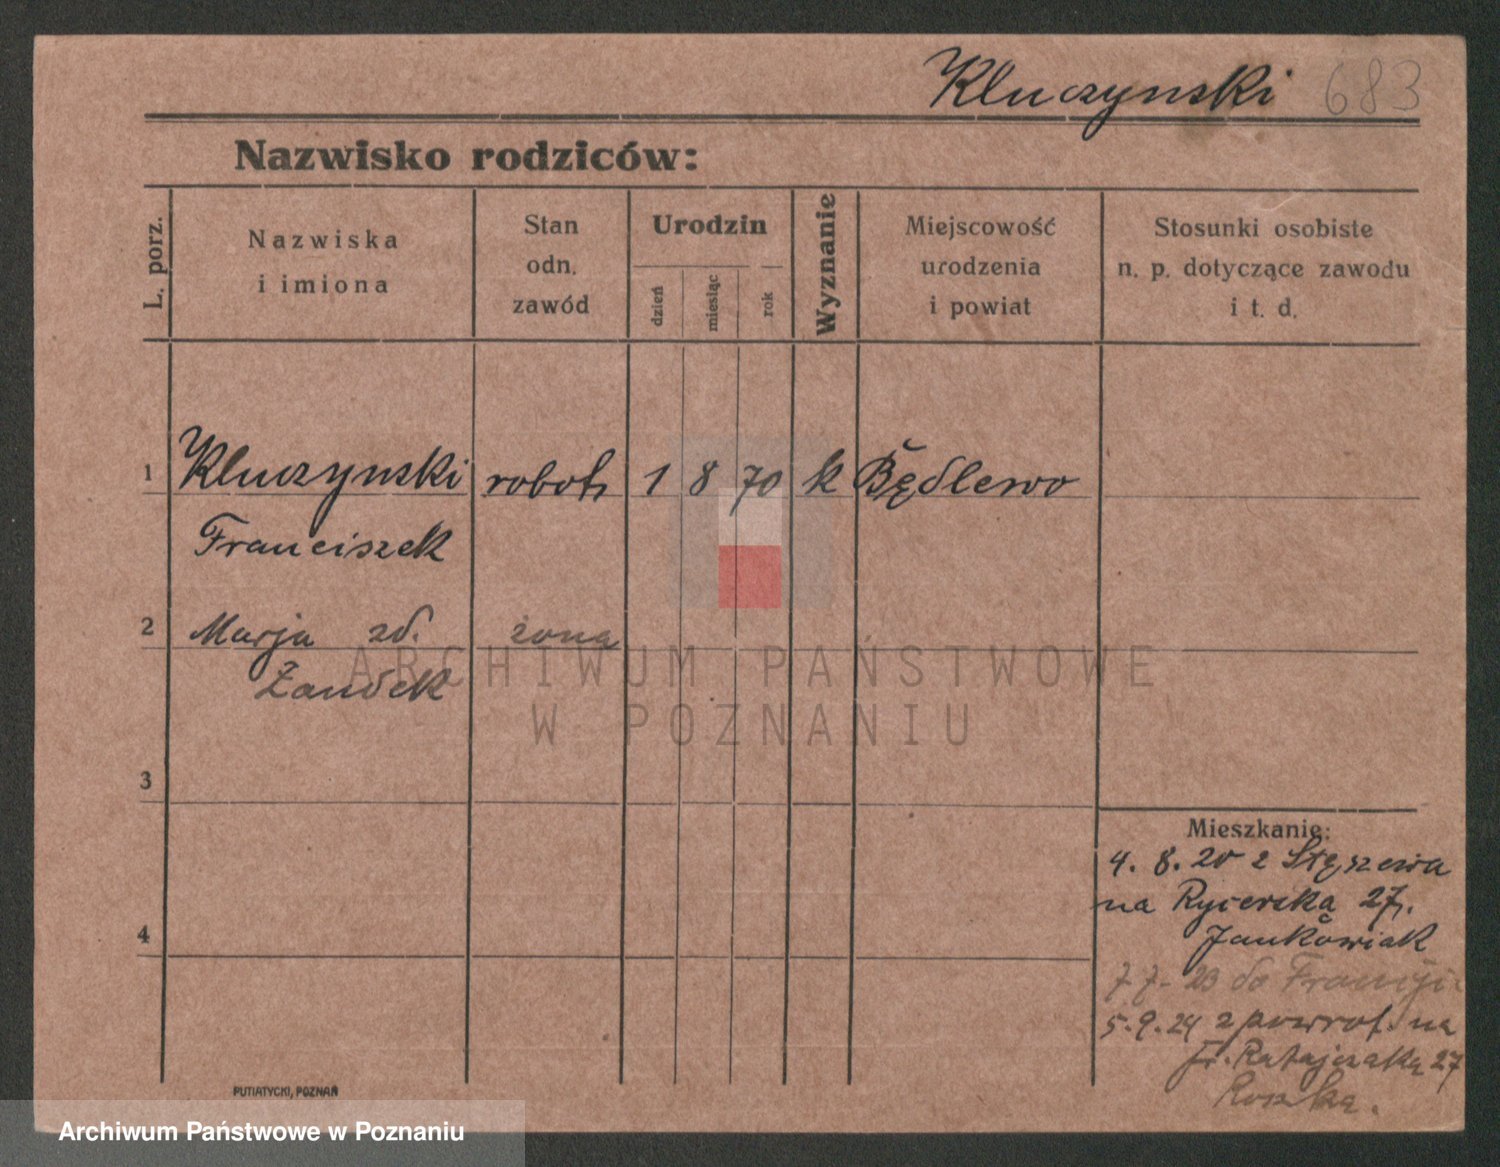 Kluczynski 683
Nazwisko rodziców:
L. porz.
Nazwiska
i imiona
Stan
odn.
zawód
Urodzin
dzień
miesiąc
rok
Wyznanie
Miejscowość
urodzenia
i powiat
Stosunki osobiste
n. p. dotyczące zawodu
i t. d.
1 Kluczynski robotn 1 8 70 k Będlewo
Franciszek
2 Marja zd. żona
Żandek
ARCHIWUM PAŃSTWOWE
W POZNANIU
3
4
Mieszkanie:
4. 8. 20 z Stęszewa
na Rycerską 27.
Jankowiak
7 7. 23 do Francji
5. 9. 24 z powrot. na
Fr. Ratajczaka 27
PUTIATYCKI, POZNAŃ
Archiwum Państwowe w Poznaniu